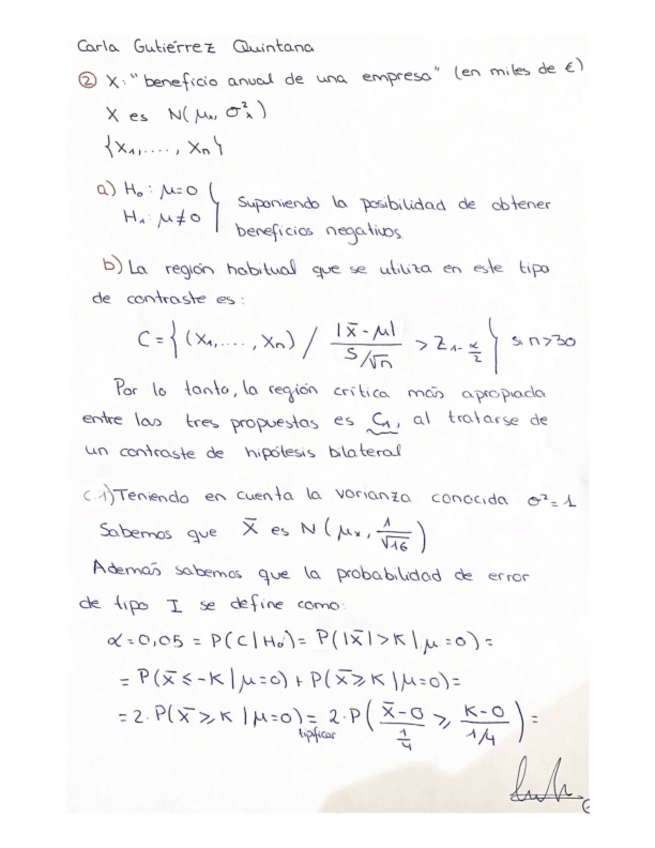 Carla Gutiérrez Quintana
② X: "beneficio anual de una empresa" (en miles de €)
X es N(μₓ, σ²ₓ)
{X₁,...., Xₙ}
a) H₀: μ=0
H₁: μ≠0
Suponiendo la posibilidad de obtener
beneficios negativos
b) La región habitual que se utiliza en este tipo
de contraste es:
C = { (X₁,...., Xₙ) / |x̄ - μ| / S/√n > Z₁₋α/₂ } si n>30
Por lo tanto, la región crítica más apropiada
entre las tres propuestas es C₁, al tratarse de
un contraste de hipótesis bilateral
c.1) Teniendo en cuenta la varianza conocida σ²=1
Sabemos que X̄ es N(μₓ, 1/√16)
Además sabemos que la probabilidad de error
de tipo I se define como:
α=0,05 = P(C|H₀) = P(|X̄|>K|μ=0) =
= P(X̄ ≤ -K|μ=0) + P(X̄ ≥ K|μ=0) =
= 2·P(X̄ ≥ K|μ=0) = 2·P( X̄-0 / 1/4 ≥ K-0 / 1/4 ) =
tipificar